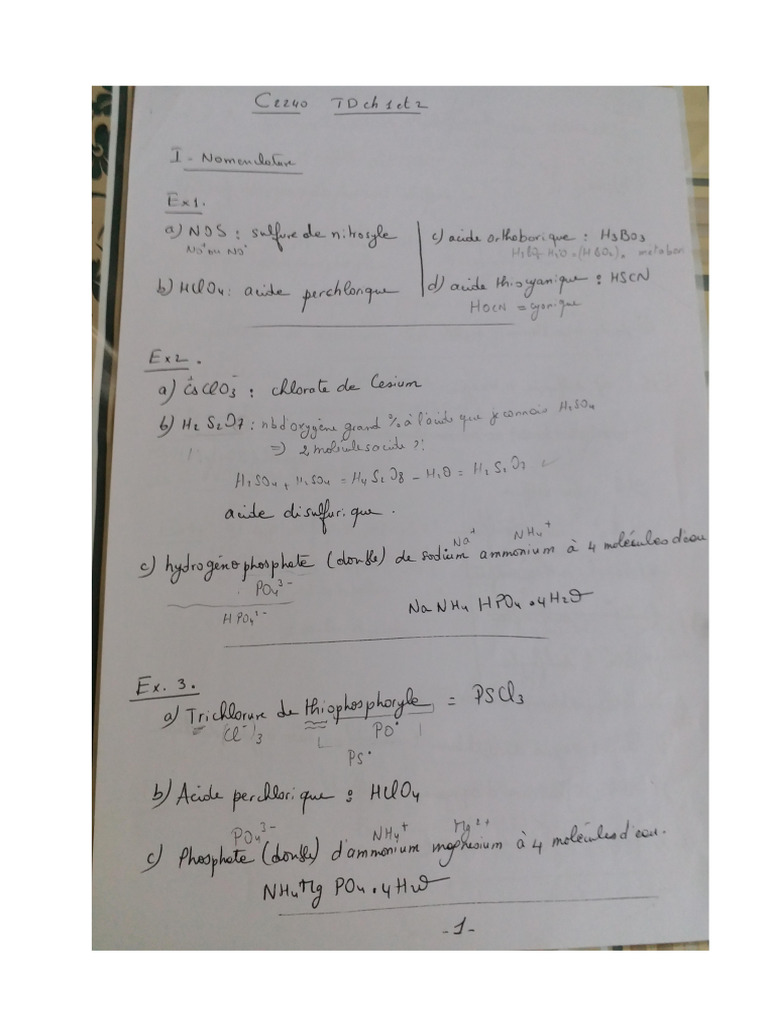 C2240 TD ch 1 et 2
I - Nomenclature
Ex1.
a) NOS : sulfure de nitrosyle
NO⁺ ou NO•
b) HClO4 : acide perchlorique
c) acide orthoborique : H3BO3
H3BO3 - H2O = (HBO2)n
d) acide thiocyanique : HSCN
HOCN = cyanique
Ex2.
a) Cs⁺ClO3⁻ : chlorate de Cesium
b) H2S2O7 : nb d'oxygène grand % à l'acide que je connais H2SO4
=> 2 molécules acide ?!
H2SO4 + H2SO4 = H4S2O8 - H2O = H2S2O7
acide disulfurique.
c) hydrogénophosphate (double) de sodium ammonium à 4 molécules d'eau
Na⁺ NH4⁺
PO4³⁻
HPO4²⁻
Na NH4 HPO4 • 4H2O
Ex. 3.
a) Trichlorure de thiophosphoryle = PSCl3
(Cl⁻)3 PO•
PS•
b) Acide perchlorique : HClO4
PO4³⁻ NH4⁺ Mg²⁺
c) Phosphate (double) d'ammonium magnesium à 4 molécules d'eau.
NH4Mg PO4 • 4H2O
- 1 -